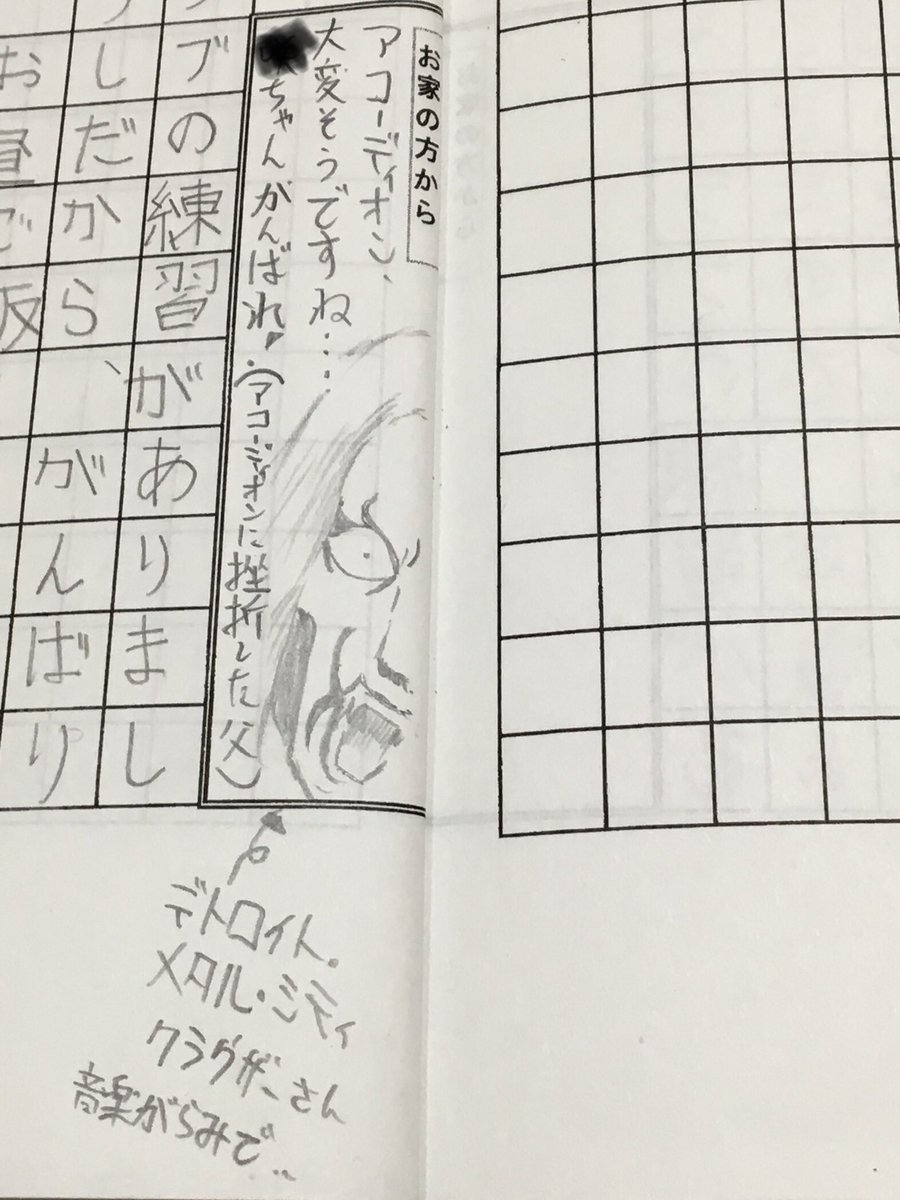 お家の方から
アコーディオン、
大変そうですね....
ちゃんがんばれ!(アコーディオンに挫折した父)
ブの練習がありまし
しだから、がんばり
お昼ご飯
デトロイト・
メタル・シティ
クラウザーさん
音楽がらみで...